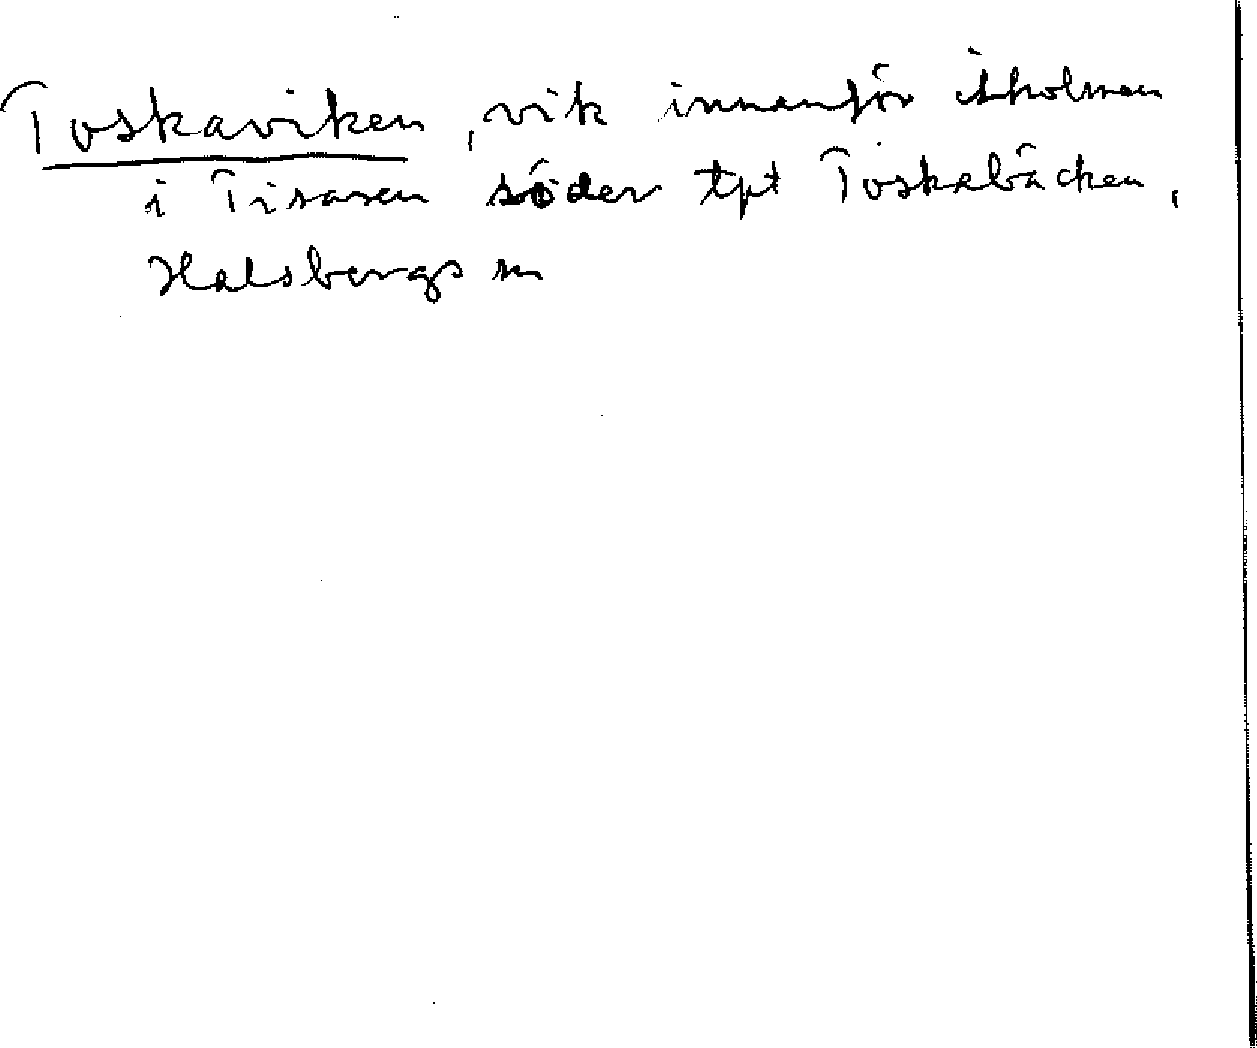 Toskaviken, vik innanför Åholmen
i Tisaren söder tpt Toskabäcken,
Halsbergs sn